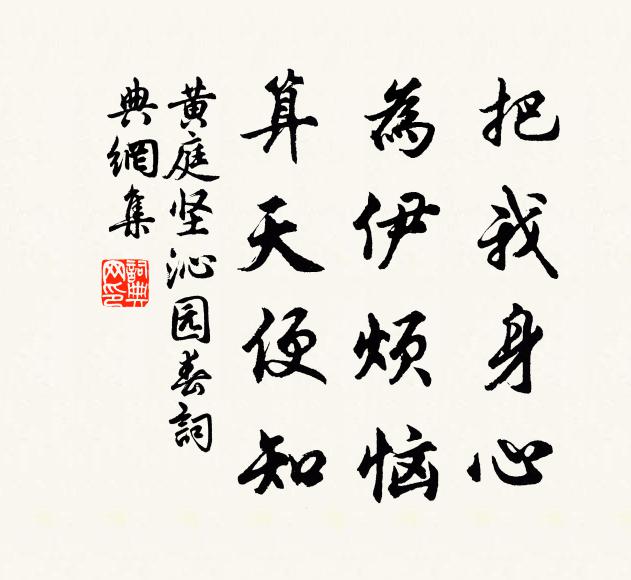 把我身心
為伊烦恼
算天便知
黄庭坚沁园春詞
典網集
詞典
网印